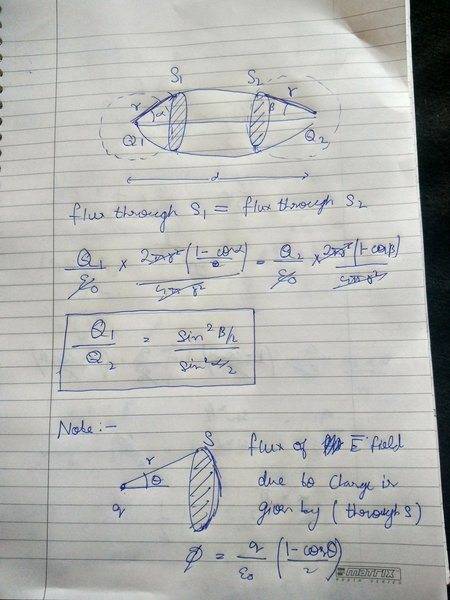 S₁ S₂
r α β r
Q₁ Q₂
d
flux through S₁ = flux through S₂
Q₁/ε₀ × 2πr²(1-cosα)/4πr² = Q₂/ε₀ × 2πr²(1-cosβ)/4πr²
Q₁/Q₂ = sin² β/2 / sin² α/2
Note :-
S
r θ
q
flux of E field
due to charge is
given by (through S)
φ = q/ε₀ (1-cosθ / 2)
matrix